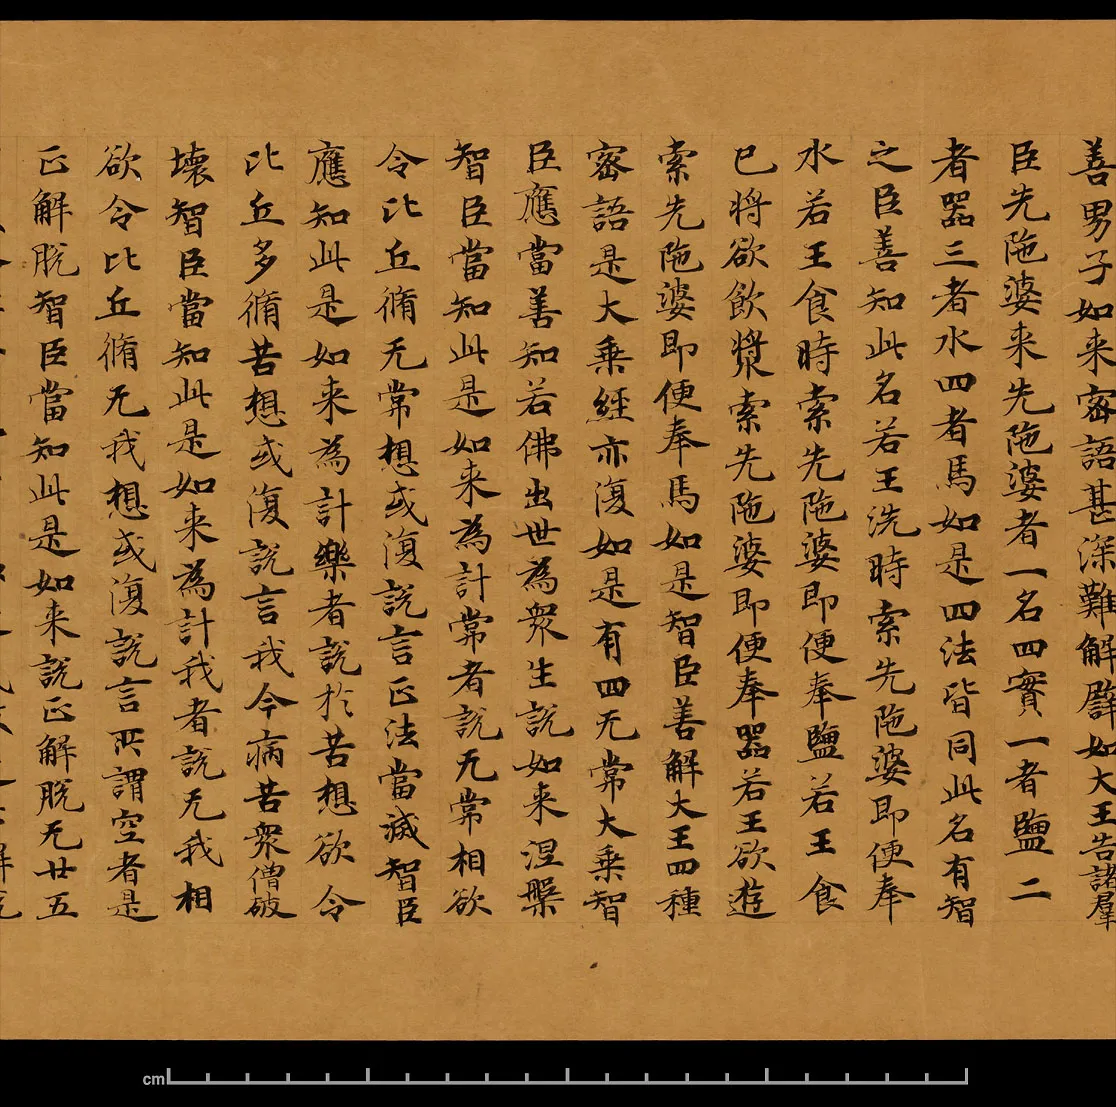 善男子如来密語甚深難解譬如大王告諸羣
臣先陁婆来先陁婆者一名四實一者鹽二
者器三者水四者馬如是四法皆同此名有智
之臣善知此名若王洗時索先陁婆即便奉
水若王食時索先陁婆即便奉鹽若王食
已將欲飲漿索先陁婆即便奉器若王欲遊
索先陁婆即便奉馬如是智臣善解大王四種
密語是大乘經亦復如是有四无常大乘智
臣應當善知若佛出世為衆生說如来涅槃
智臣當知此是如来為計常者說无常相欲
令比丘脩无常想或復說言正法當滅智臣
應知此是如来為計樂者說於苦想欲令
比丘多脩苦想或復說言我今病苦衆僧破
壞智臣當知此是如来為計我者說无我相
欲令比丘脩无我想或復說言所謂空者是
正解脫智臣當知此是如来說正解脫无廿五